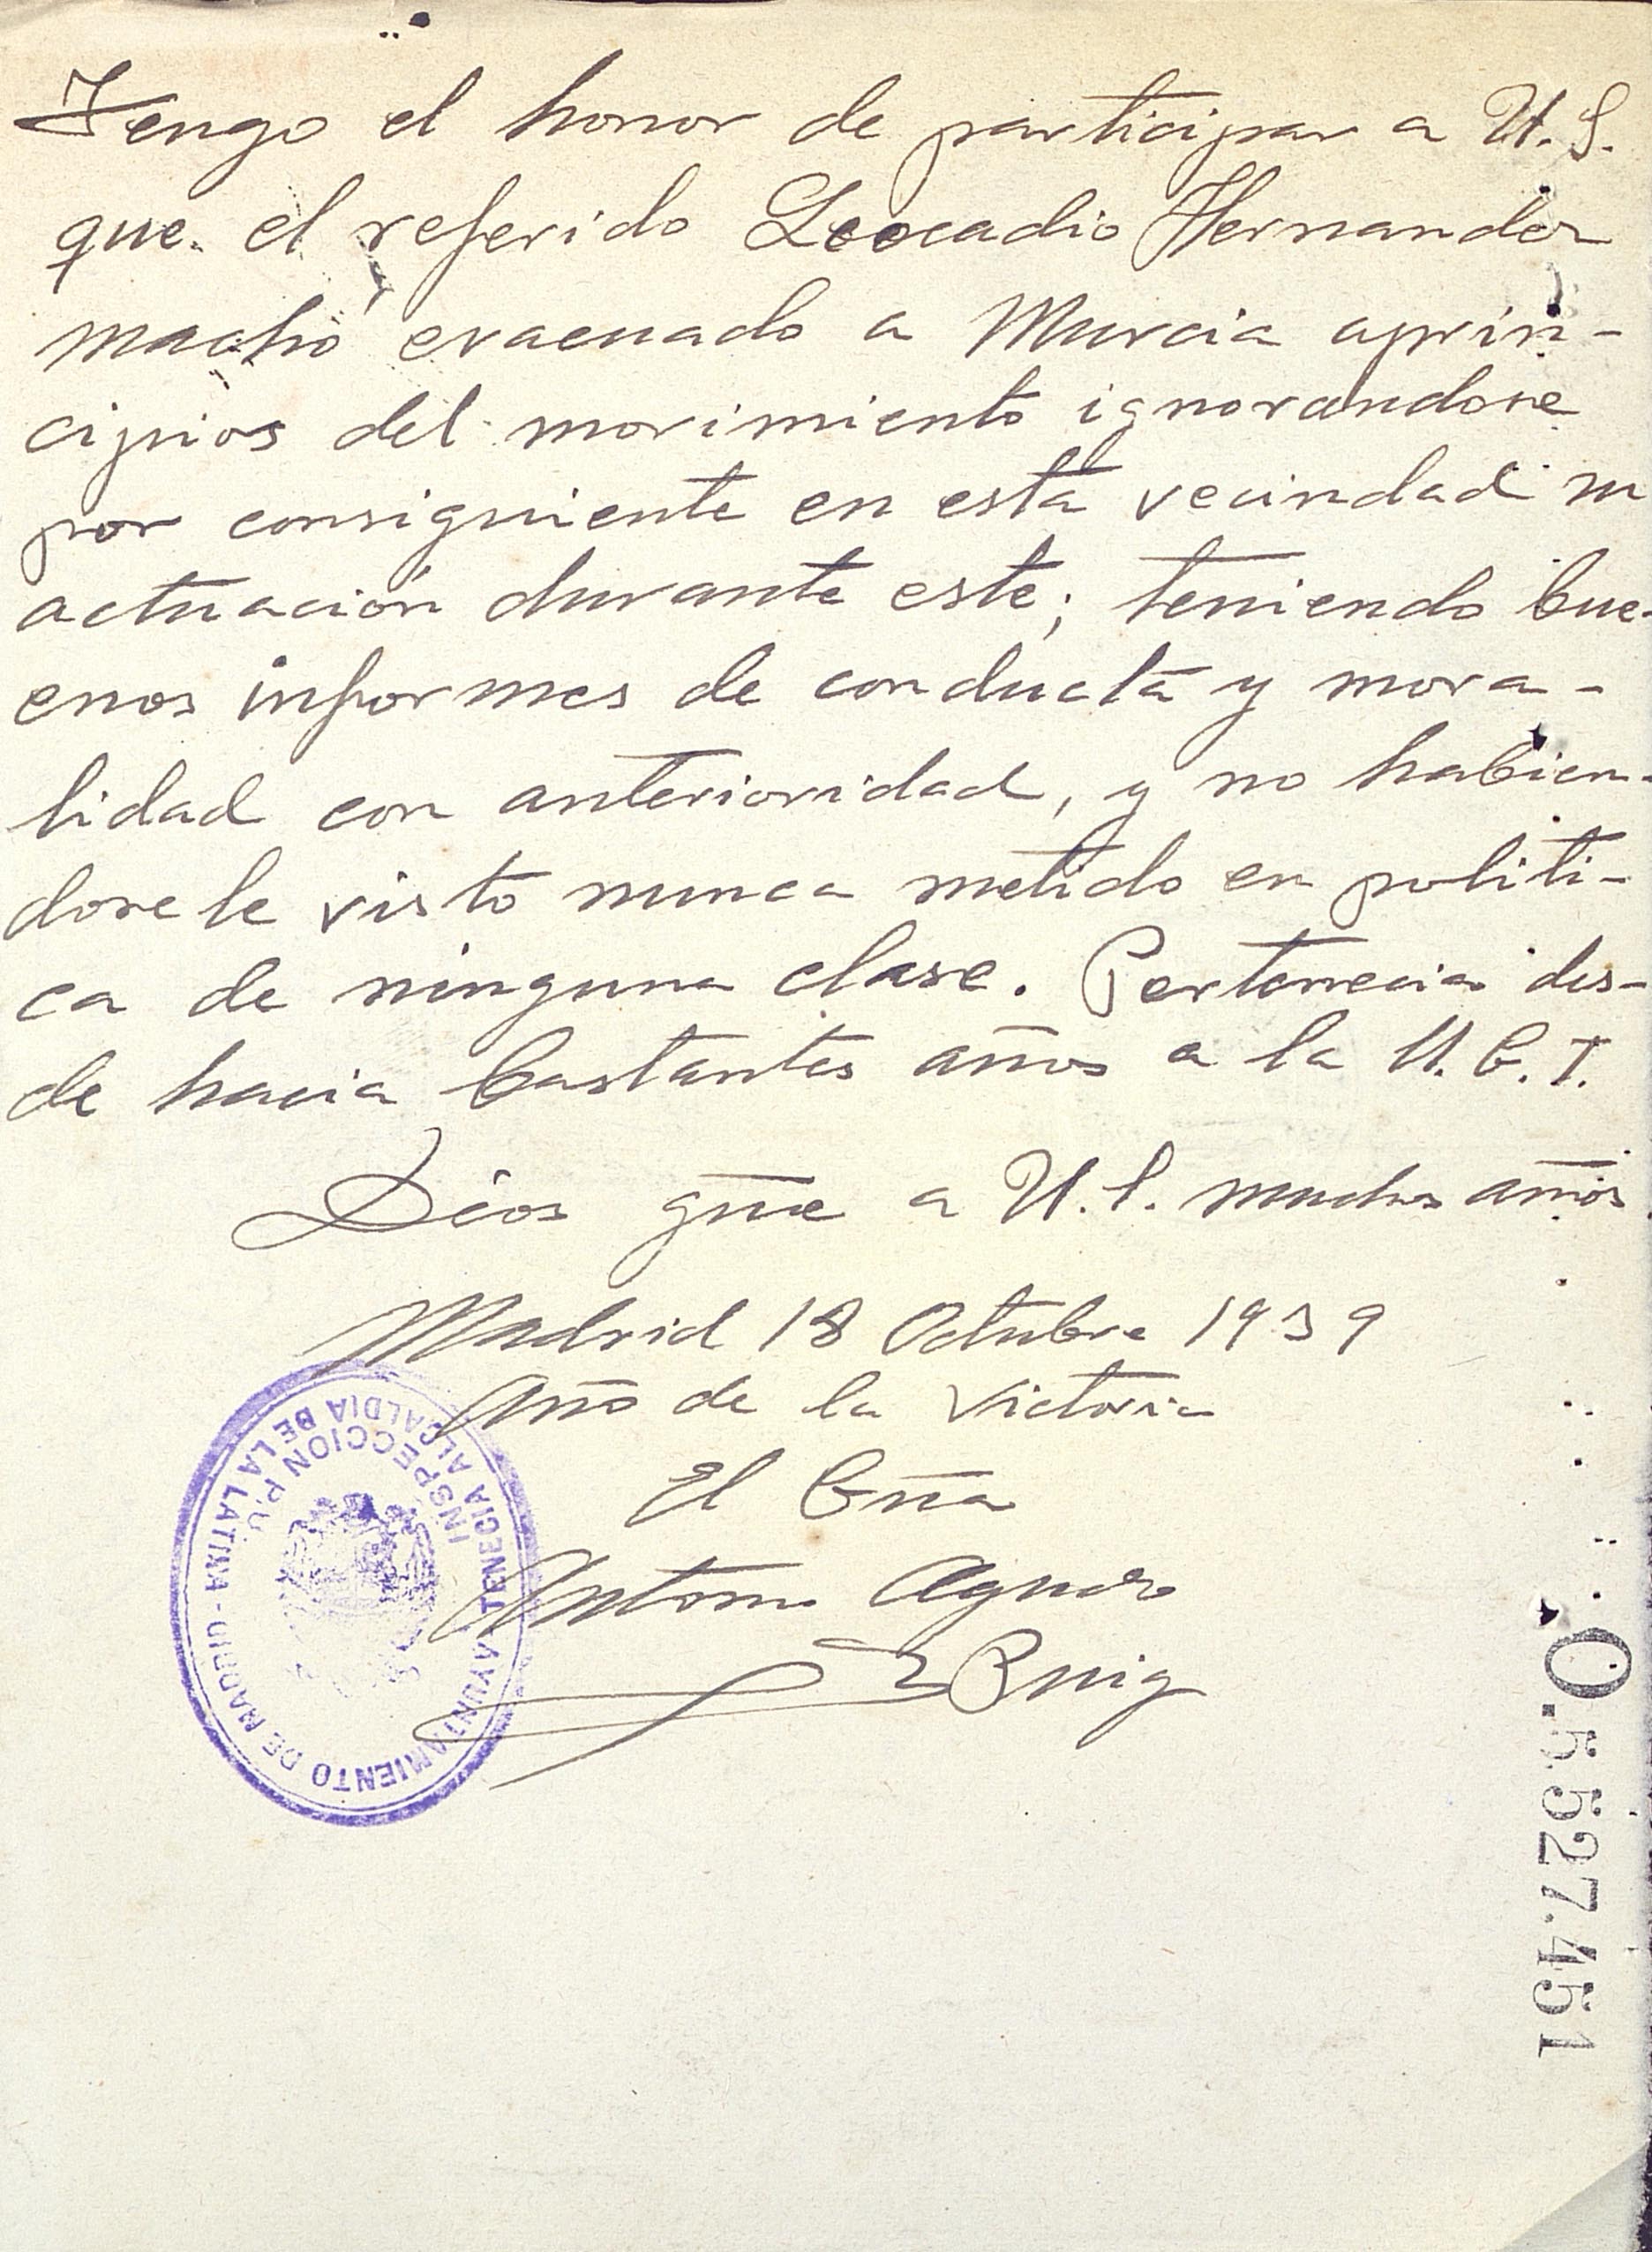 Tengo el honor de participar a U.S.
que el referido Leocadio Hernandez
macho evacuado a Murcia aprin-
cipios del movimiento ignorandose
por consiguiente en esta vecindad su
actuación durante este; teniendo bue-
enos informes de conducta y mora-
lidad con anterioridad, y no habien-
dosele visto nunca metido en politi-
ca de ninguna clase. Pertenecia des-
de hacia bastantes años a la U.G.T.
Dios gũe a U.S. muchos años
Madrid 18 Octubre 1939
Año de la Victoria
El
Antonio Aguado
Puig
AYUNTAMIENTO DE MADRID - TENENCIA ALCALDIA DE LA LATINA -
INSPECCION P.U.
O.5.527.451